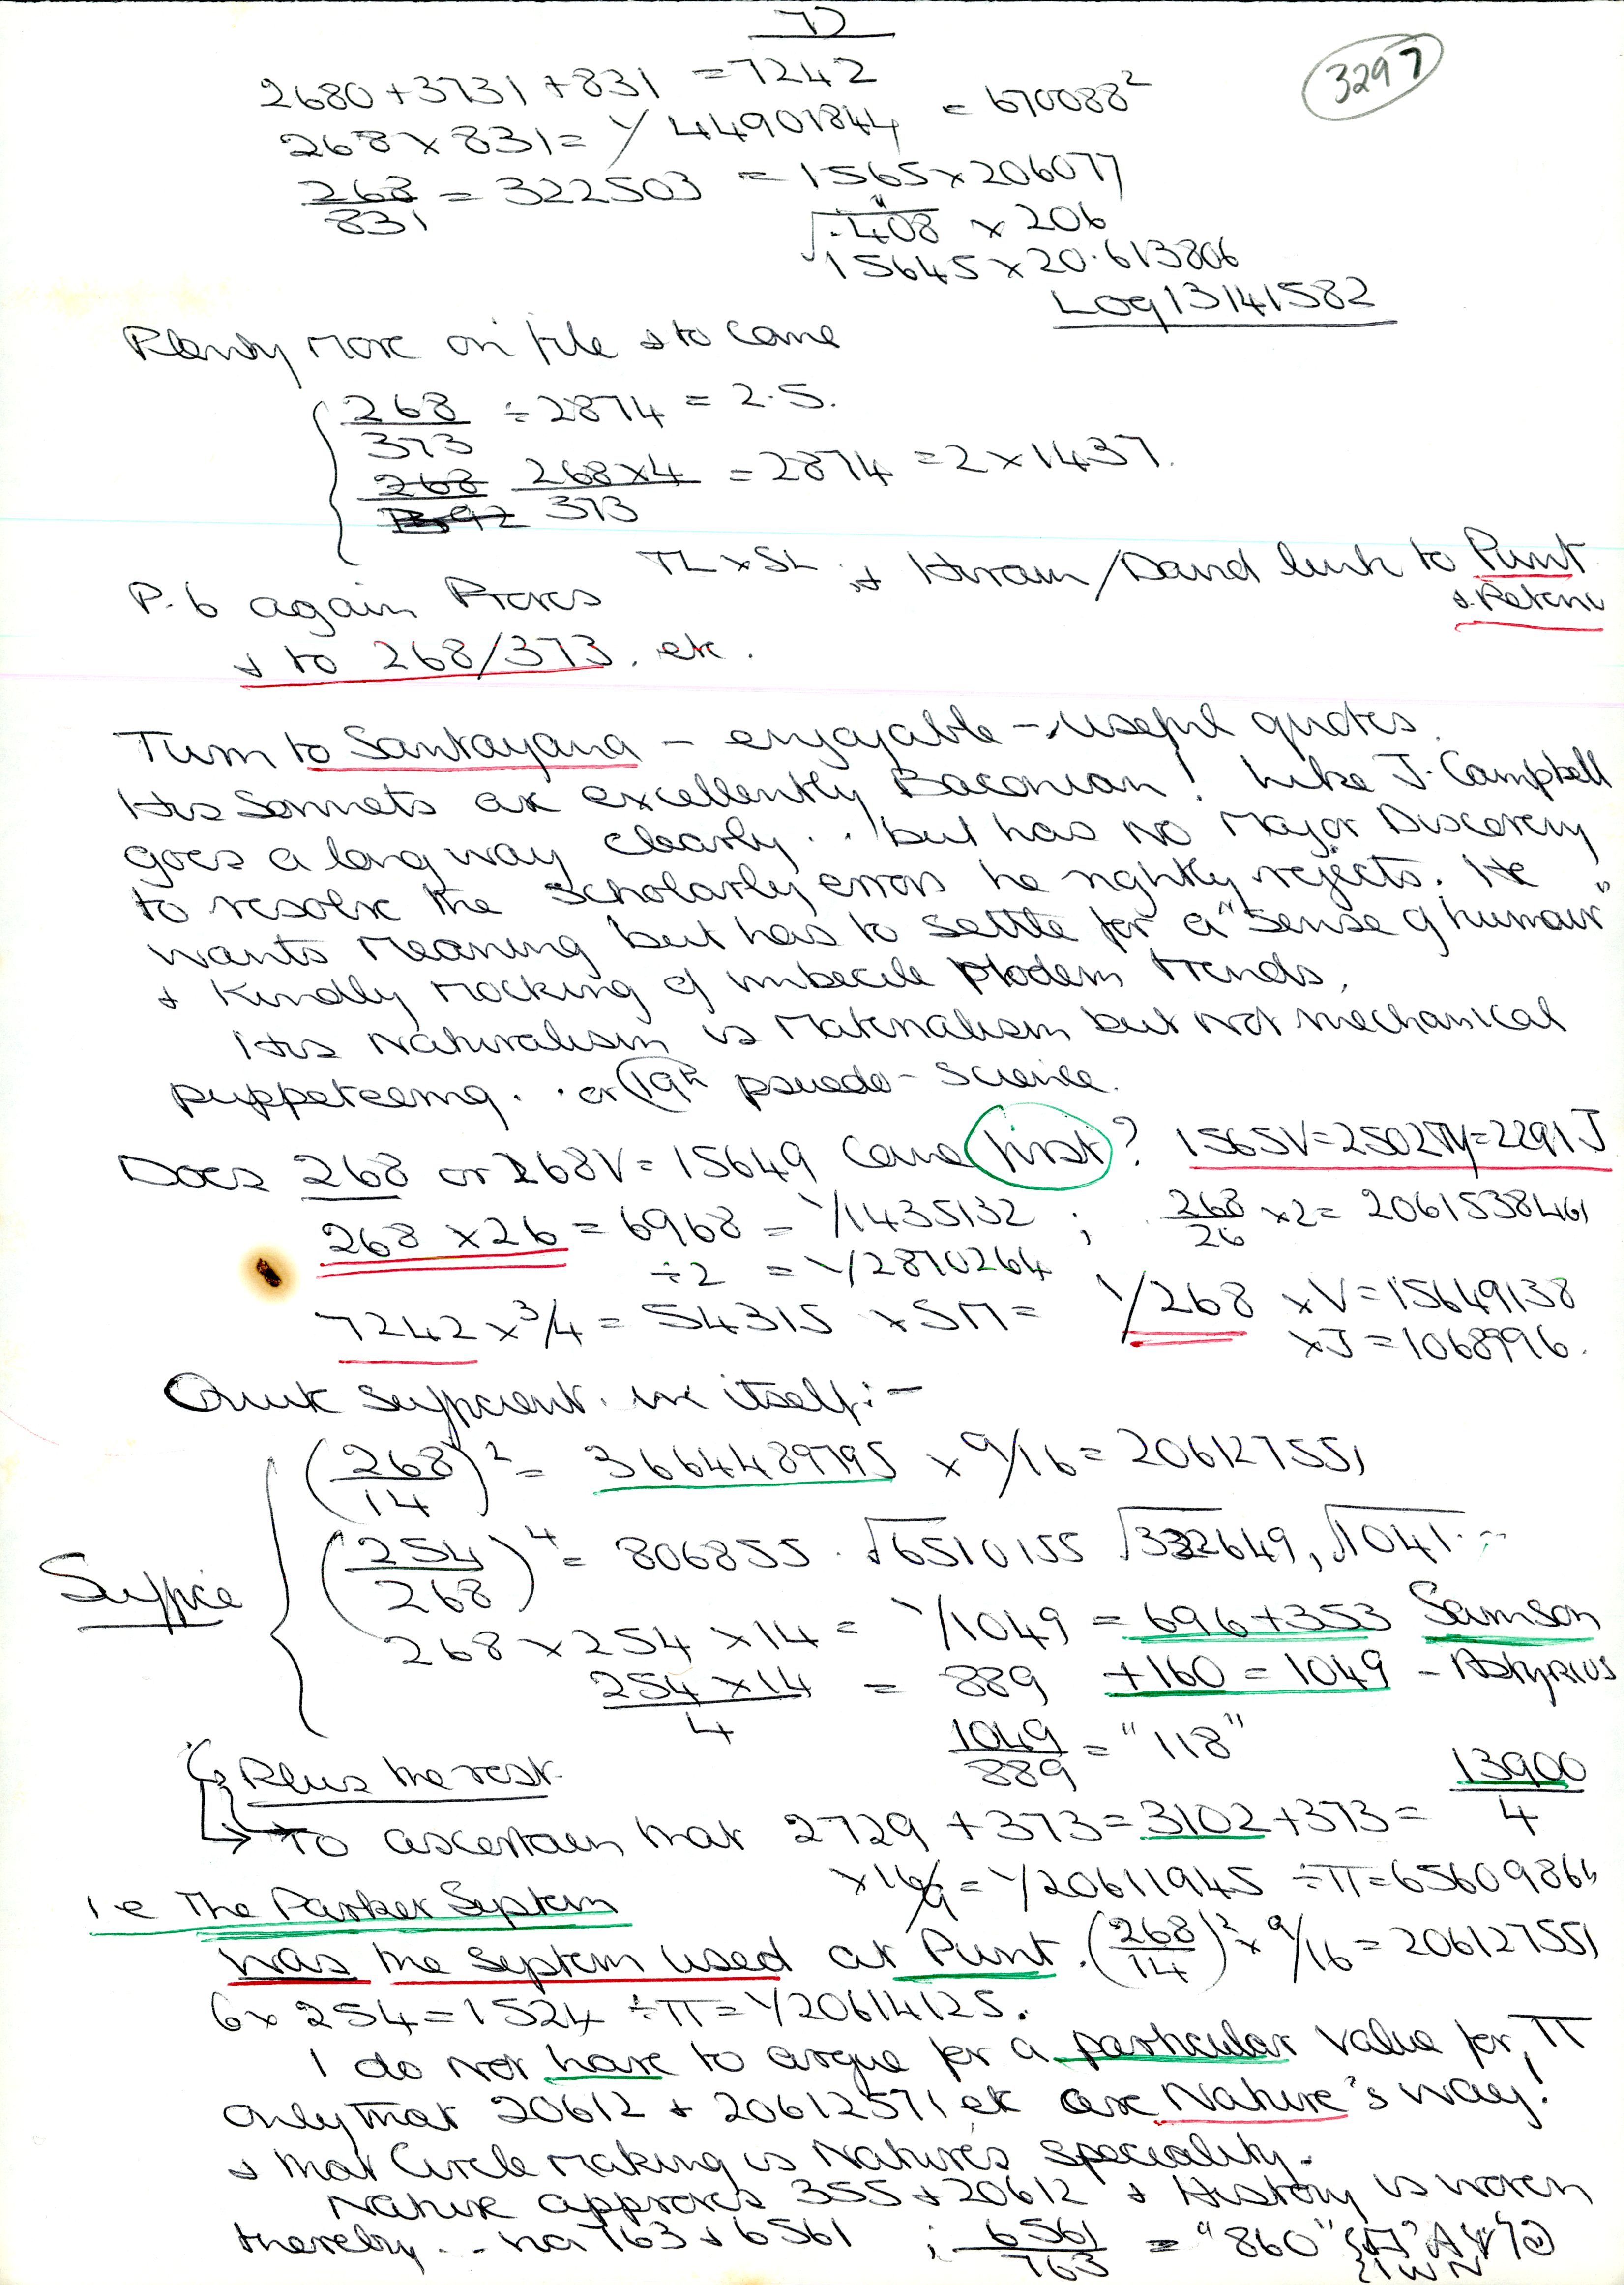 3297
2680 + 3731 + 831 = 7242
268 x 831 = 1/44901844 = 670088²
268/831 = 322503 = 1565 x 206077
√·408 x 206
15645 x 20·613806
Log 13141582
Plenty More on file & to come
268/373 ÷ 2874 = 2·5.
268 x 4/373 = 2874 = 2 x 1437.
TL x SL ; & Hiram/David link to Punt
P.6 again Proves & Retenu
& to 268/373. etc.
Turn to Santayana – enjoyable – useful quotes.
His Sonnets are excellently Baconian! Like J. Campbell
goes a long way clearly.. but has No Major Discovery
to resolve the Scholarly errors he rightly rejects. He
wants Meaning but has to settle for a "Sense of humour"
& Kindly Mocking of imbecile Modern trends.
His Naturalism is Materialism but not mechanical
puppeteering. . or 19th pseudo-Science.
Does 268 or 268V = 15649 come first? 1565V = 2502 = 2291J
268 x 26 = 6968 = 1/1435132 ; 268/26 x 2 = 2061538461
÷2 = 1/2870264
7242 x 3/4 = 54315 x SM = 1/268 x V = 15649138
x J = 1068996.
Quite Sufficient. in itself:–
(268/14)² = 3664489795 x 9/16 = 206127551
Suffice (254/268)⁴ = 806855. √6510155 √322649, √1041.
268 x 254 x 14 = 1/1049 = 696 + 353 Samson
254 x 14/4 = 889 + 160 = 1049 –
1049/889 = "118"
Plus the rest.
To ascertain that 2729 + 373 = 3102 + 373 = 13900/4
x 16/9 = 1/20611945 ÷ π = 65609866
i.e The Parker System
was the system used at Punt. (268/14)² x 9/16 = 206127551
6 x 254 = 1524 ÷ π = 1/20614125.
I do Not have to argue for a particular value for π
Only that 20612 & 20612571 etc are Nature's way!
& that Circle Making is Nature's speciality.
Nature approves 355 & 20612 & History is woven
thereby... via 763 & 6561 ; 6561/763 = "860"